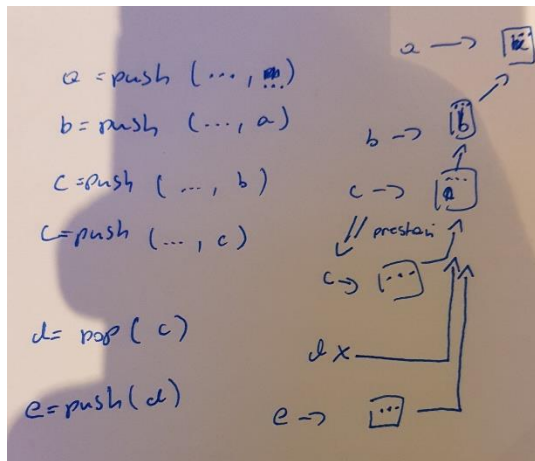 a = push (..., ...)
b = push (..., a)
c = push (..., b)
c = push (..., c)
d = pop ( c )
e = push(d)
a → ...
b → ...
c → ...
prestavi
c → ...
d x
e → ...